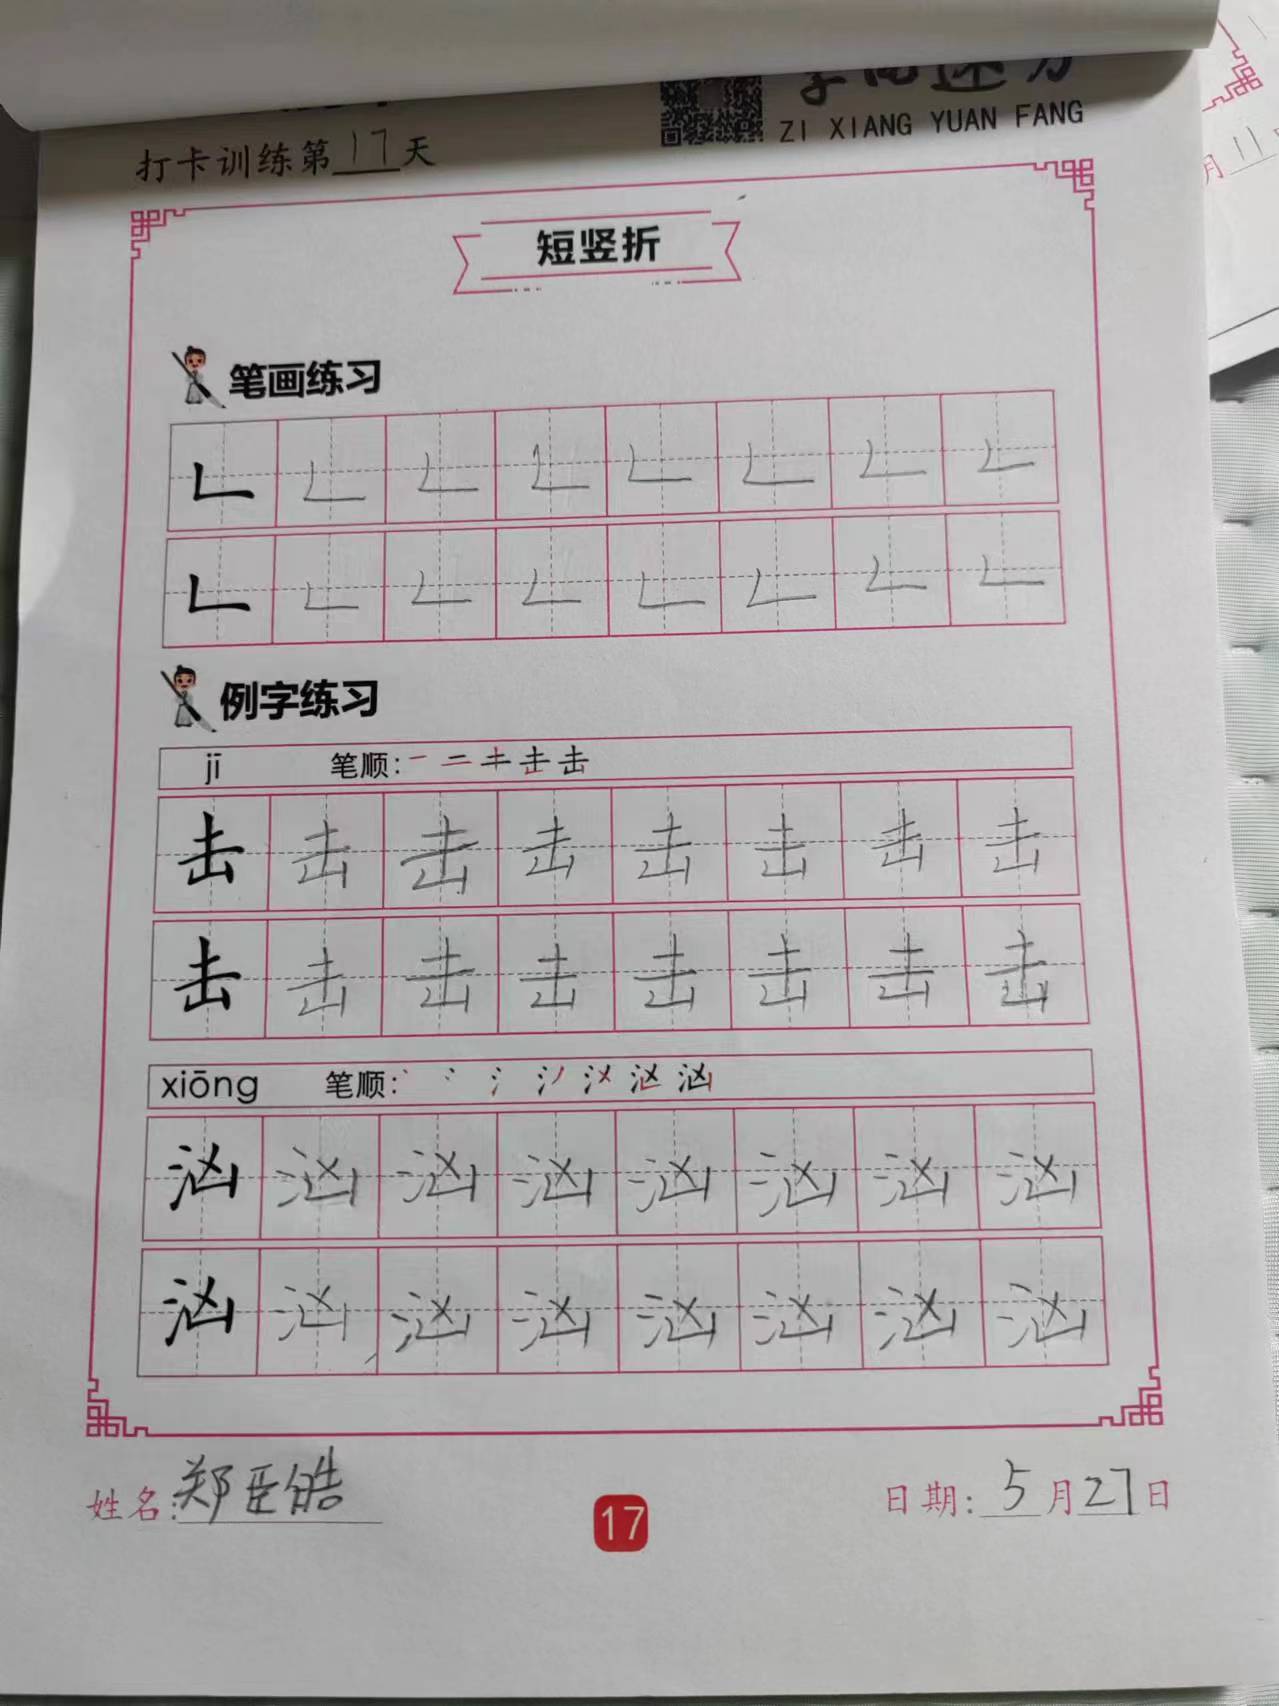 ZI XIANG YUAN FANG
打卡训练第17天
短竖折
笔画练习
𠃊 𠃊 𠃊 𠃊 𠃊 𠃊 𠃊 𠃊
𠃊 𠃊 𠃊 𠃊 𠃊 𠃊 𠃊 𠃊
例字练习
jī 笔顺:
击 击 击 击 击 击 击 击
击 击 击 击 击 击 击 击
xiōng 笔顺:
汹 汹 汹 汹 汹 汹 汹 汹
汹 汹 汹 汹 汹 汹 汹 汹
姓名:郑臣皓 日期:5月27日
17
月11